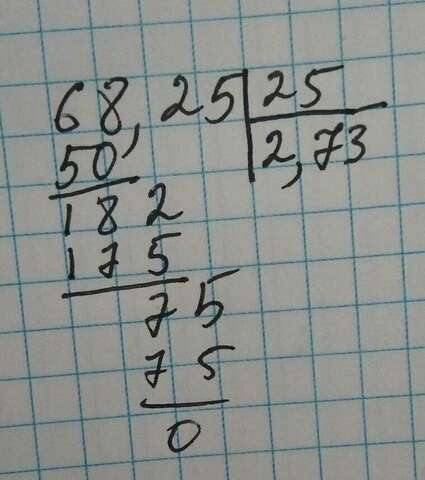 68,25 25
50 2,73
182
175
75
75
0